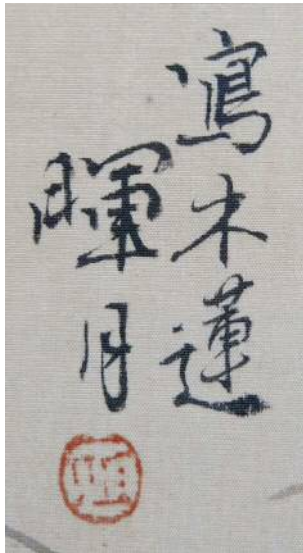 寫木蓮
暉月